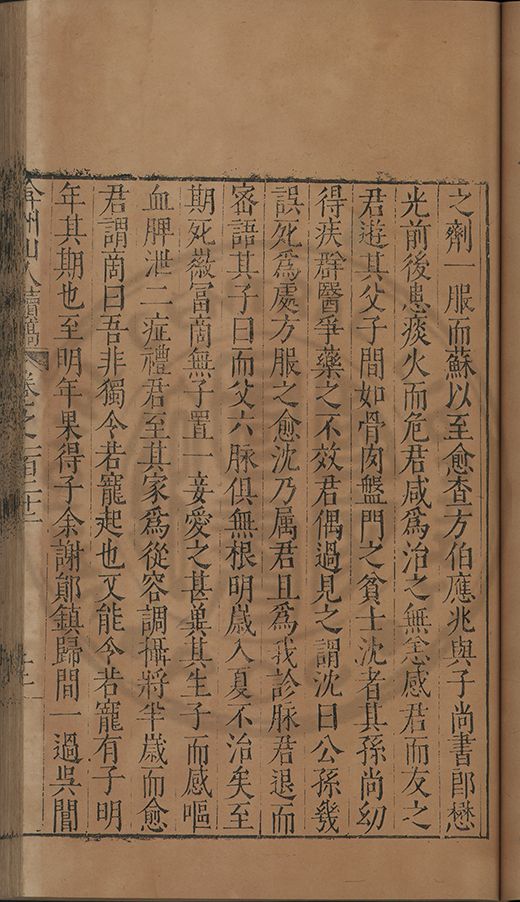 之劑一服而蘇以至愈查方伯應兆與子尚書郎懋
光前後患痰火而危君咸為治之無恙感君而友之
君遊其父子間如骨肉盤門之貧士沈者其孫尚幼
得疾群醫爭藥之不效君偶過見之謂沈曰公孫幾
誤死為處方服之愈沈乃属君且為我診脉君退而
密語其子曰而父六脉俱無根明歲入夏不治矣至
期死薇富啇無子置一妾愛之甚兾其生子而感嘔
血脾泄二症禮君至其家為從容調攝將半歲而愈
君謂啇曰吾非獨令若寵起也又能令若寵有子明
年其期也至明年果得子余謝鄖鎮歸間一過吳閶
弇州山人續稿 卷之一百二十二